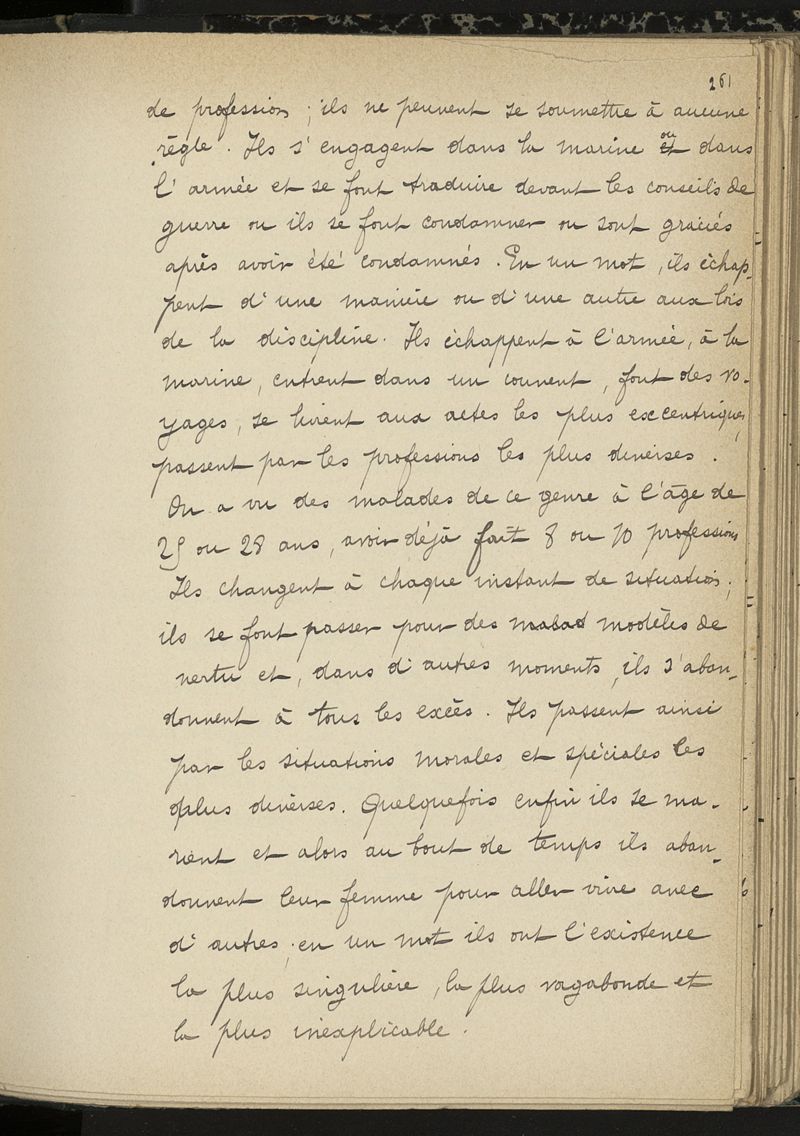 261
de profession ; ils ne peuvent se soumettre à aucune
règle. Ils s'engagent dans la marine ~~et~~ ou dans
l'armée et se font traduire devant les conseils de
guerre ou ils se font condamner ou sont graciés
après avoir été condamnés. En un mot, ils échap-
pent d'une manière ou d'une autre aux lois
de la discipline. Ils échappent à l'armée, à la
marine, entrent dans un couvent, font des vo-
yages, se livrent aux actes les plus excentriques,
passent par les professions les plus diverses.
On a vu des malades de ce genre à l'âge de
25 ou 28 ans, avoir déjà fait 8 ou 10 professions
Ils changent à chaque instant de situation ;
ils se font passer pour des ~~malad~~ modèles de
vertu et, dans d'autres moments, ils s'aban-
donnent à tous les excès. Ils passent ainsi
par les situations morales et spéciales les
plus diverses. Quelquefois enfin ils se ma-
rient et alors au bout de temps ils aban-
donnent leur femme pour aller vivre avec
d'autres ; en un mot ils ont l'existence
la plus singulière, la plus vagabonde et
la plus inexplicable.